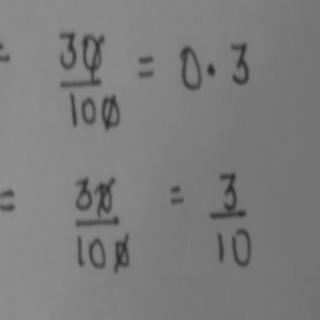 = 30/100 = 0.3
= 30/100 = 3/10